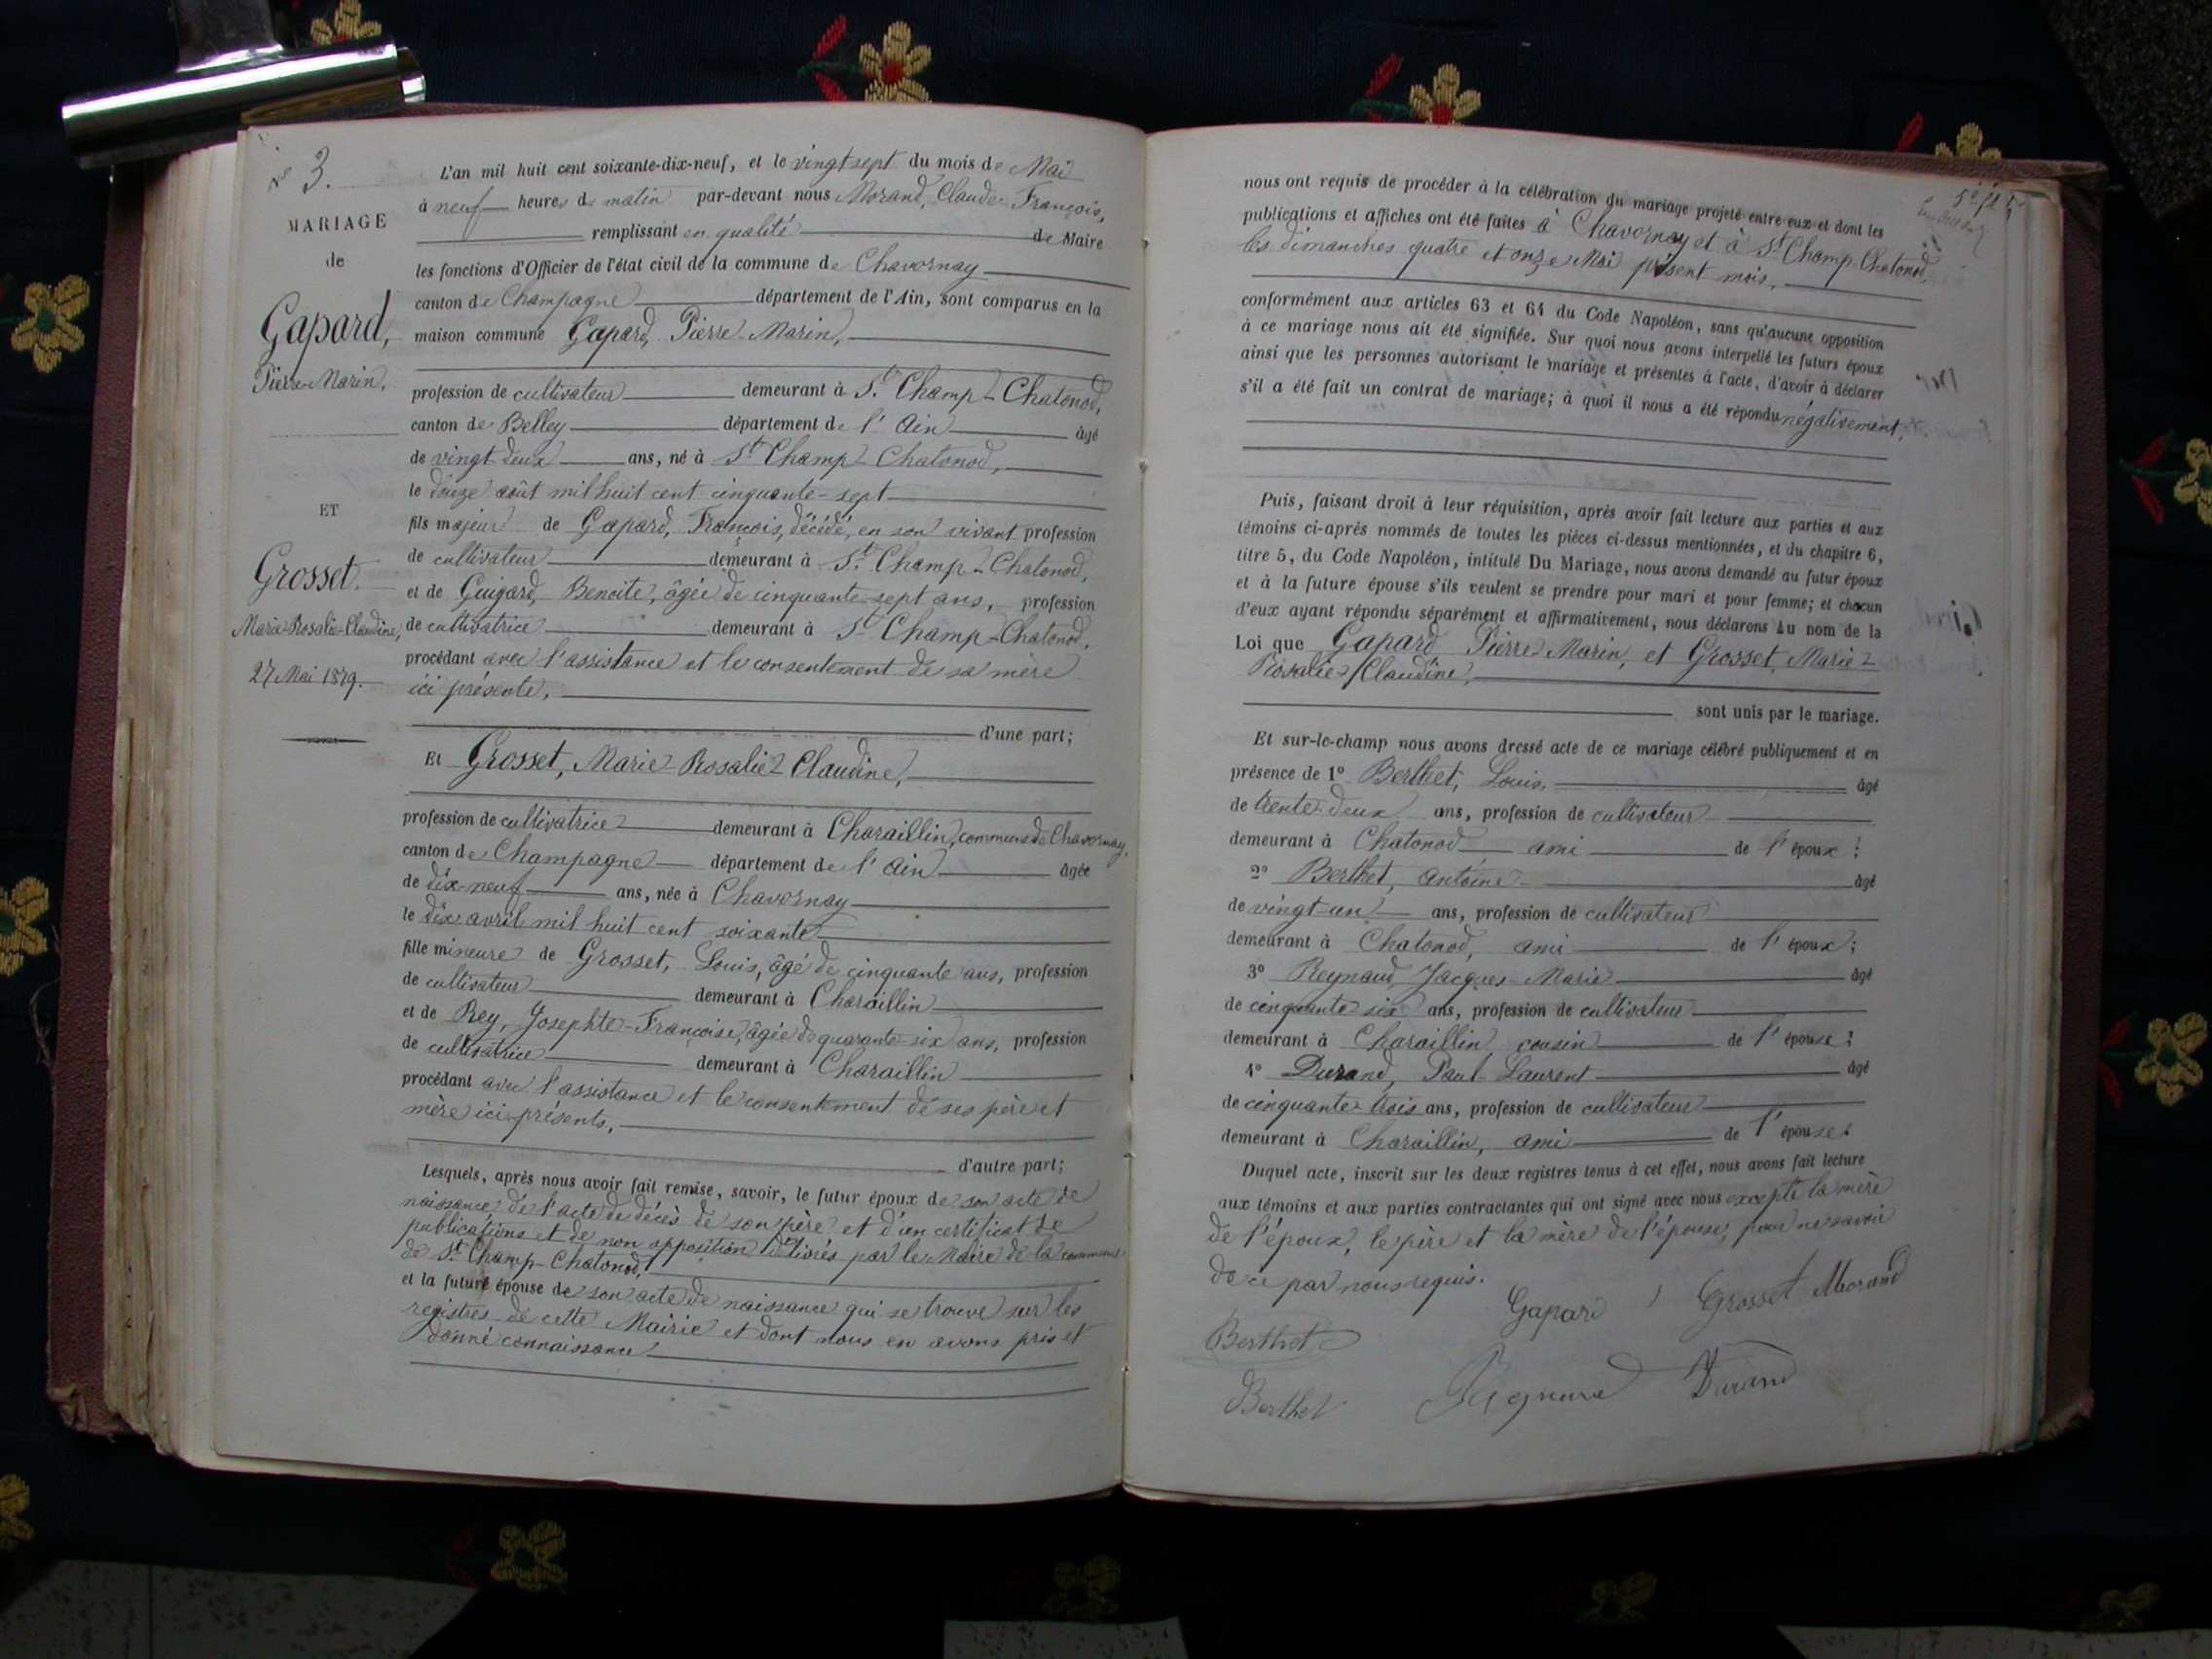 N° 3.
MARIAGE
de
Gapard,
Pierre-Marin,
ET
Grosset.
Marie-Rosalie-Claudine,
27 Mai 1879.
L'an mil huit cent soixante-dix-neuf, et le vingt sept du mois de Mai
à neuf heures du matin par-devant nous Morand, Claude François,
remplissant en qualité de Maire
les fonctions d'Officier de l'état civil de la commune de Chavornay
canton de Champagne département de l'Ain, sont comparus en la
maison commune Gapard, Pierre-Marin,
profession de cultivateur demeurant à St. Champ-Chatonod,
canton de Belley département de l'Ain âgé
de vingt-deux ans, né à St. Champ-Chatonod,
le douze août mil huit cent cinquante-sept
fils majeur de Gapard, François, décédé, en son vivant profession
de cultivateur demeurant à St. Champ-Chatonod,
et de Guigard, Benoite, âgée de cinquante-sept ans, profession
de cultivatrice demeurant à St. Champ-Chatonod,
procédant avec l'assistance et le consentement de sa mère
ici présente,
d'une part;
Et Grosset, Marie-Rosalie-Claudine,
profession de cultivatrice demeurant à Charaillin, commune de Chavornay,
canton de Champagne département de l'Ain âgée
de dix-neuf ans, née à Chavornay
le dix avril mil huit cent soixante
fille mineure de Grosset, Louis, âgé de cinquante ans, profession
de cultivateur demeurant à Charaillin
et de Rey, Josephte-Françoise, âgée de quarante-six ans, profession
de cultivatrice demeurant à Charaillin
procédant avec l'assistance et le consentement de ses père et
mère ici présents,
d'autre part;
Lesquels, après nous avoir fait remise, savoir, le futur époux de son acte de
naissance, de l'acte de décès de son père et d'un certificat de
publications et de non opposition délivrés par le Maire de la commune
de St. Champ-Chatonod,
et la future épouse de son acte de naissance qui se trouve sur les
registres de cette Mairie et dont nous en avons pris et
donné connaissance
nous ont requis de procéder à la célébration du mariage projeté entre eux et dont les
publications et affiches ont été faites à Chavornay et à St Champ-Chatonod,
les dimanches quatre et onze Mai présent mois,
conformément aux articles 63 et 64 du Code Napoléon, sans qu'aucune opposition
à ce mariage nous ait été signifiée. Sur quoi nous avons interpellé les futurs époux
ainsi que les personnes autorisant le mariage et présentes à l'acte, d'avoir à déclarer
s'il a été fait un contrat de mariage; à quoi il nous a été répondu négativement,
Puis, faisant droit à leur réquisition, après avoir fait lecture aux parties et aux
témoins ci-après nommés de toutes les pièces ci-dessus mentionnées, et du chapitre 6,
titre 5, du Code Napoléon, intitulé Du Mariage, nous avons demandé au futur époux
et à la future épouse s'ils veulent se prendre pour mari et pour femme; et chacun
d'eux ayant répondu séparément et affirmativement, nous déclarons Au nom de la
Loi que Gapard Pierre Marin, et Grosset, Marie-
Rosalie-Claudine,
sont unis par le mariage.
Et sur-le-champ nous avons dressé acte de ce mariage célébré publiquement et en
présence de 1° Berthet, Louis, âgé
de trente-deux ans, profession de cultivateur
demeurant à Chatonod ami de l'époux;
2° Berthet, Antoine âgé
de vingt-un ans, profession de cultivateur
demeurant à Chatonod, ami de l'époux;
3° Reynaud, Jacques-Marie âgé
de cinquante six ans, profession de cultivateur
demeurant à Charaillin cousin de l'épouse;
4° Durand, Paul-Laurent âgé
de cinquante-trois ans, profession de cultivateur
demeurant à Charaillin, ami de l'épouse.
Duquel acte, inscrit sur les deux registres tenus à cet effet, nous avons fait lecture
aux témoins et aux parties contractantes qui ont signé avec nous excepté la mère
de l'époux, le père et la mère de l'épouse, pour ne savoir
de ce par nous requis.
Gapard Grosset Morand
Berthet
Berthet Durand